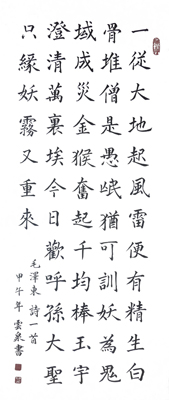 一從大地起風雷便有精生白
骨堆僧是愚氓猶可訓妖為鬼
域成災金猴奮起千均棒玉宇
澄清萬裏埃今日歡呼孫大聖
只緣妖霧又重來
毛澤東詩一首
甲午年雲泉書